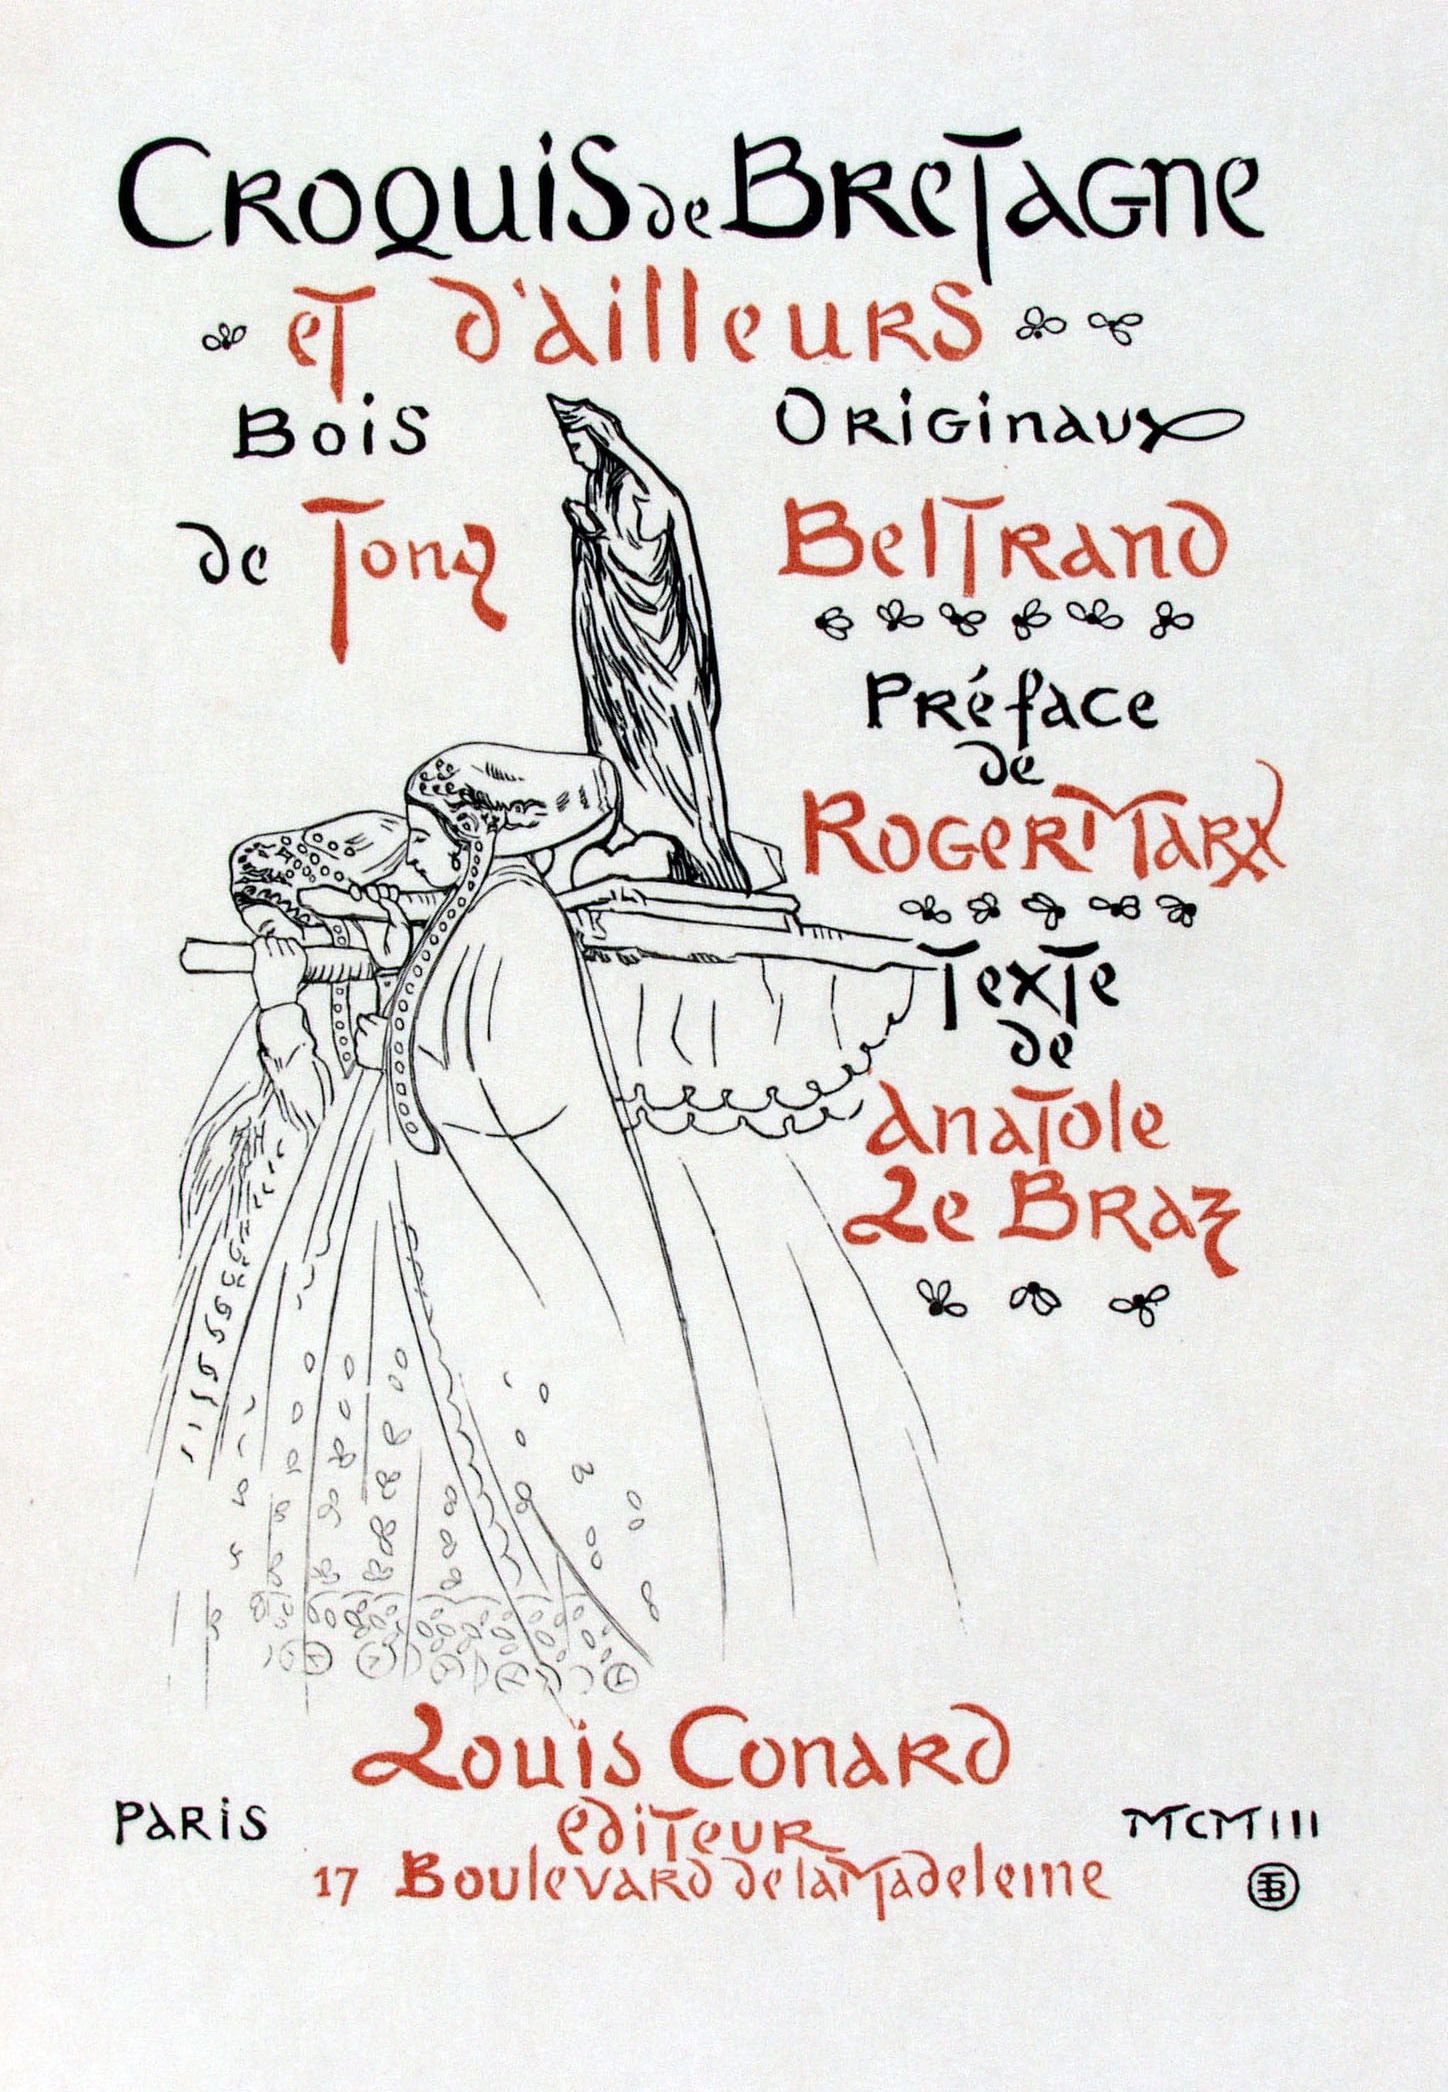 Croquis de Bretagne
et d'ailleurs
Bois Originaux
de Tony Beltrand
Préface
de
Roger Marx
Texte
de
Anatole
Le Braz
Louis Conard
Paris editeur MCMIII
17 Boulevard de la Madeleine
TB